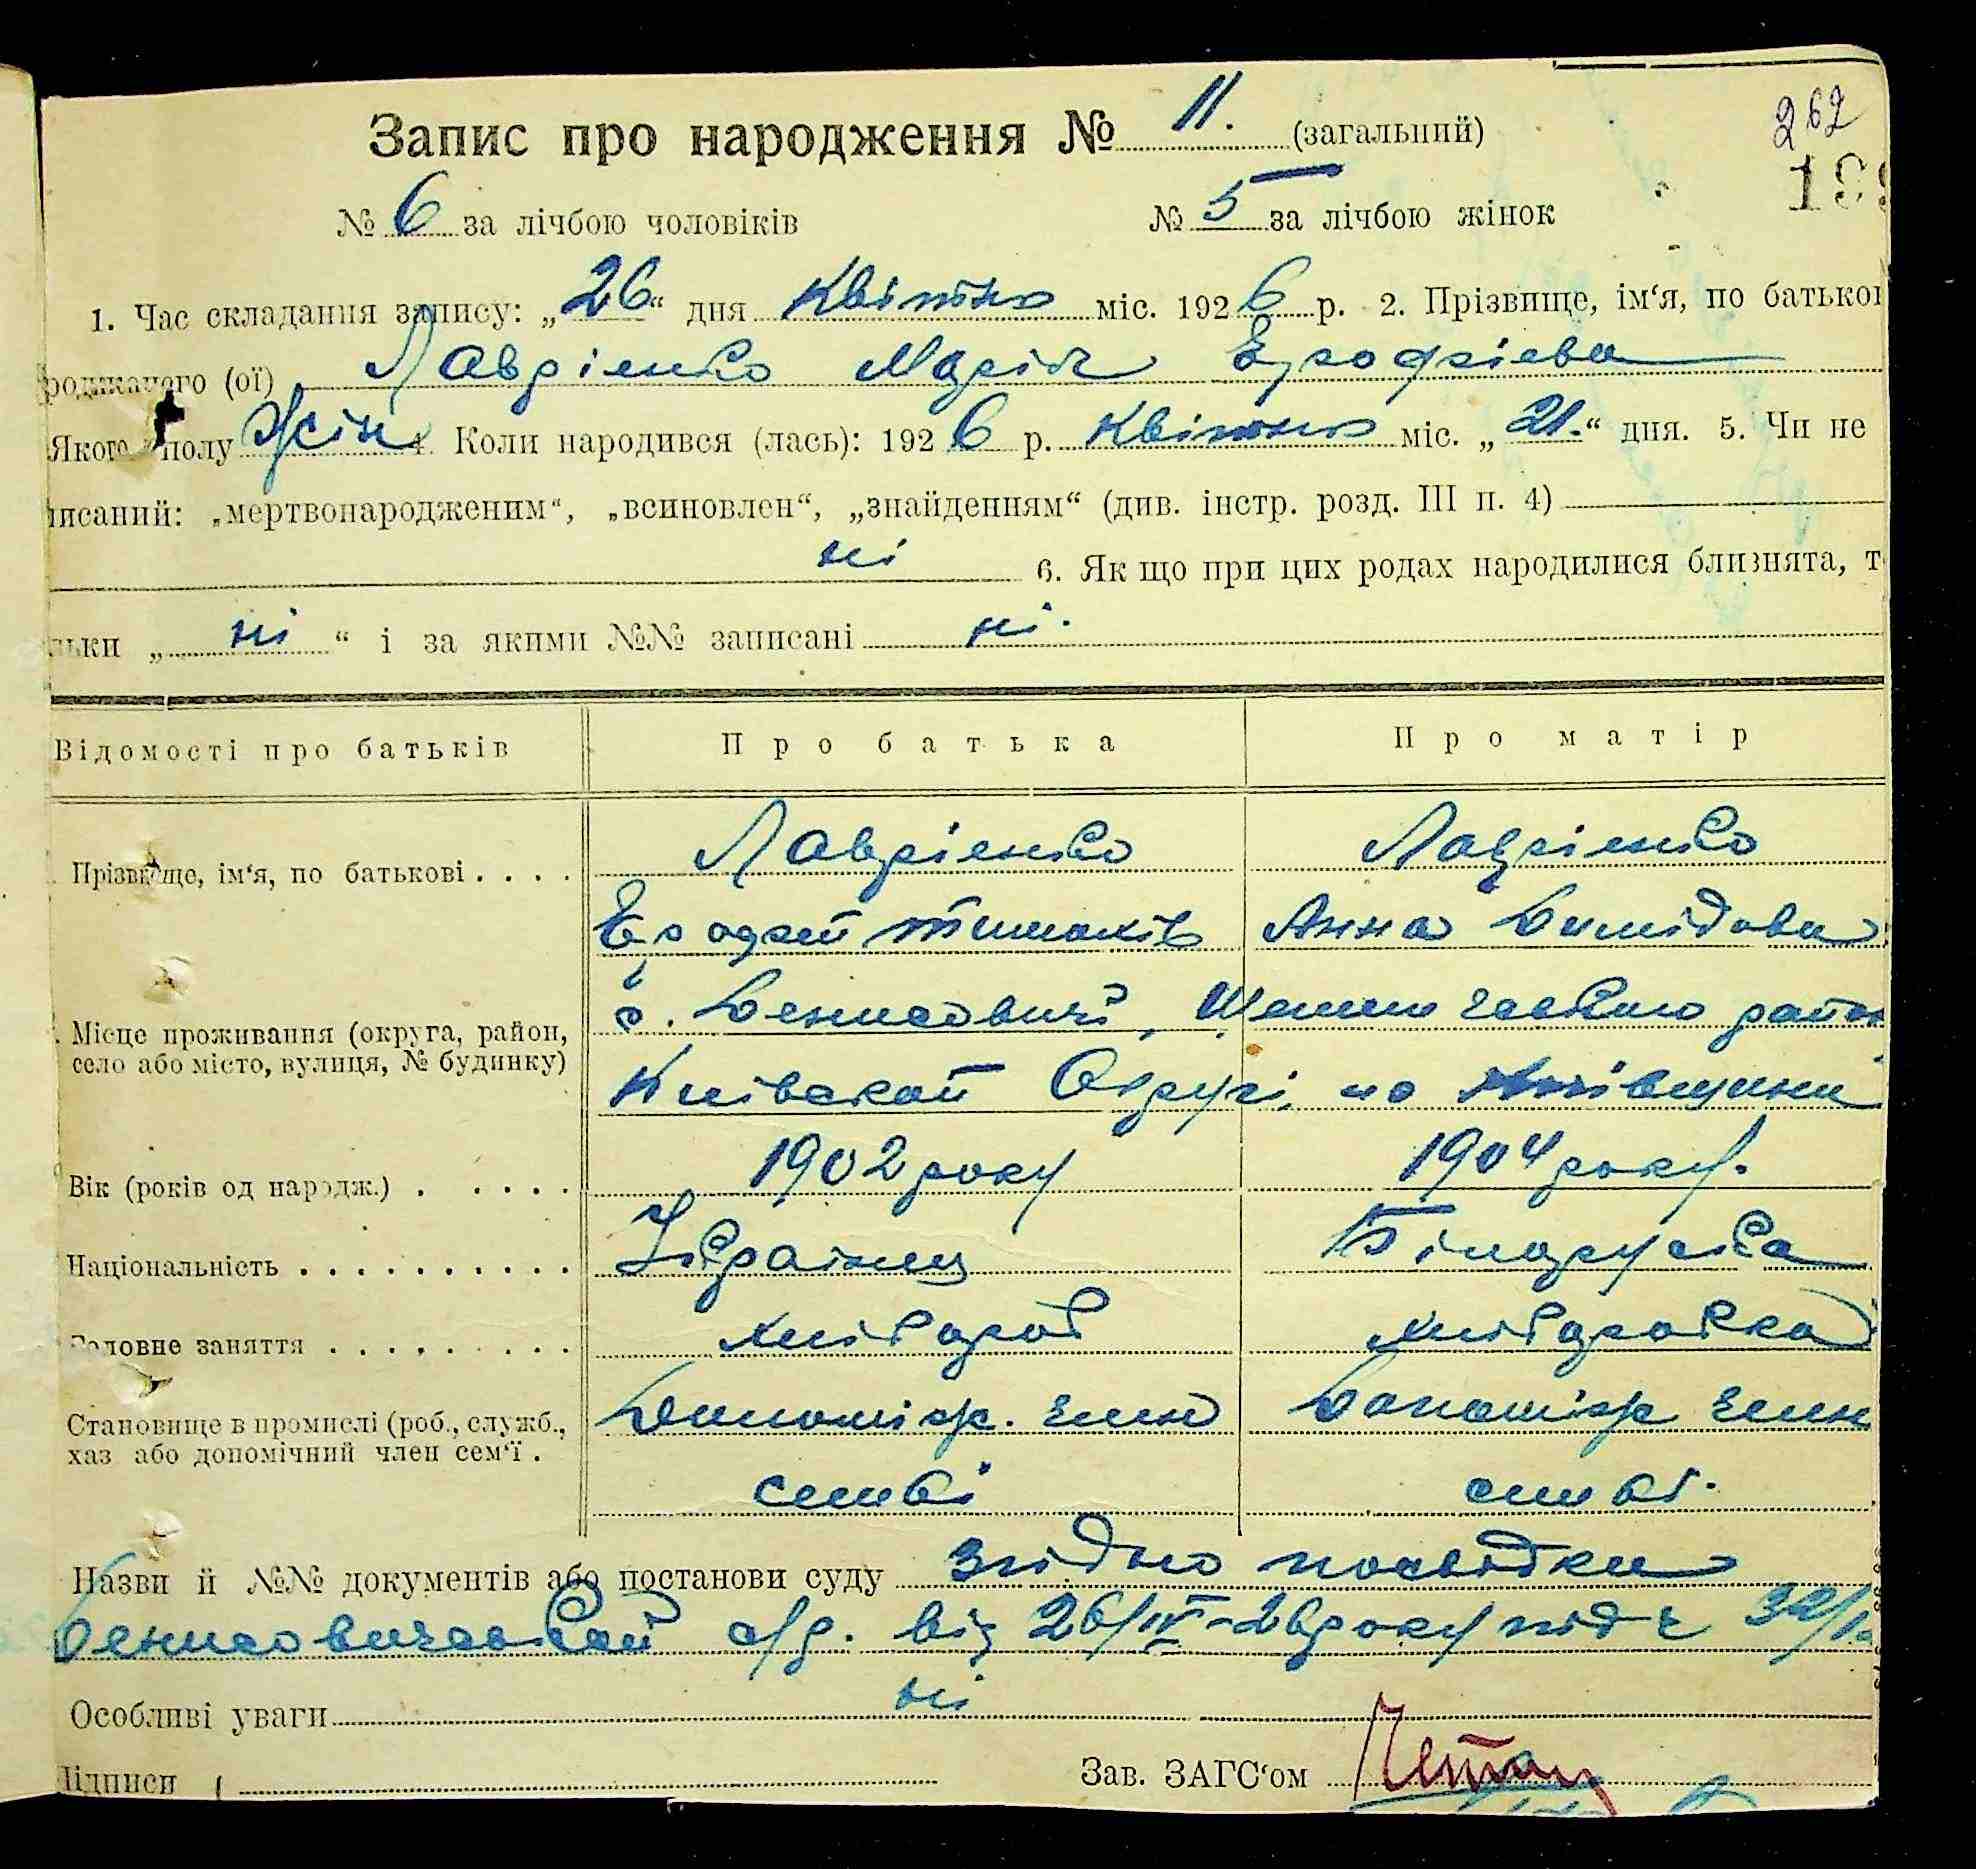 262
Запис про народження № 11. (загальний)
199
№ 6 за лічбою чоловіків № 5 за лічбою жінок
1. Час складання запису: „26“ дня Квітня міс. 1926 р. 2. Прізвище, ім‘я, по батькові
родженого (ої) Лаврієнко Марія Ерофієва
Якого полу Жін 4. Коли народився (лась): 1926 р. Квітня міс. „21.“ дня. 5. Чи не
писаний: „мертвонародженим“, „всиновлен“, „знайденням“ (див. інстр. розд. III п. 4)
ні 6. Як що при цих родах народилися близнята, т
льки „ні“ і за якими №№ записані ні.
Відомості про батьків Про батька Про матір
Прізвище, ім‘я, по батькові . . . . Лаврієнко Лаврієнко
Ерофей Анна Демідова
Місце проживання (округа, район, с. Денисовичі, район
село або місто, вулиця, № будинку) Київской Округі, на Київщини
Вік (років од народж.) . . . . . 1902 року 1904 року.
Національність . . . . . . . . . . Українец Білоруска
Головне заняття . . . . . . . . . хлібороб хліборобка
Становище в промислі (роб., служб., Допоміж. член Допоміж член
хаз або допомічний член сем‘ї . семьі семьі.
Назви й №№ документів або постанови суду згідно посвідки
Денисовичевской с/р. від 26/IV-26 року під ч 32/
Особливі уваги ні
Підписи ( Зав. ЗАГС‘ом